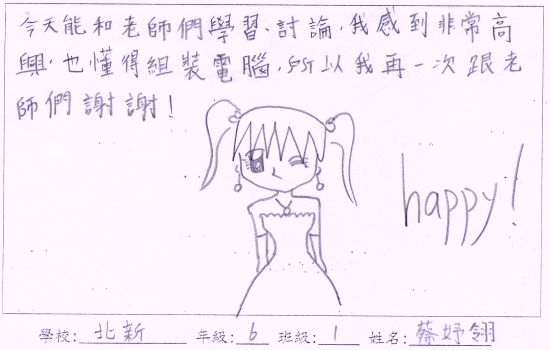 今天能和老師們學習、討論,我感到非常高
興,也懂得組裝電腦,所以我再一次跟老
師們謝謝!
happy!
學校: 北新 年級: 6 班級: 1 姓名: 蔡妤翎